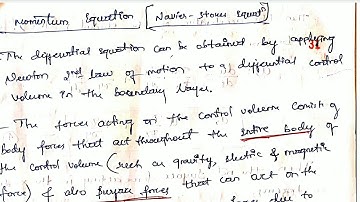 Momentum Equation [Navier-Stokes Equati
The differential equation can be obtained by applying
31
Newton 2nd law of motion to a differential control
volume in the boundary layer.
The forces acting on the control volume consist of
body forces that act throughout the entire body of
the control volume (such as gravity, electric & magnetic
force) & also surface forces that can act on the
forces due to